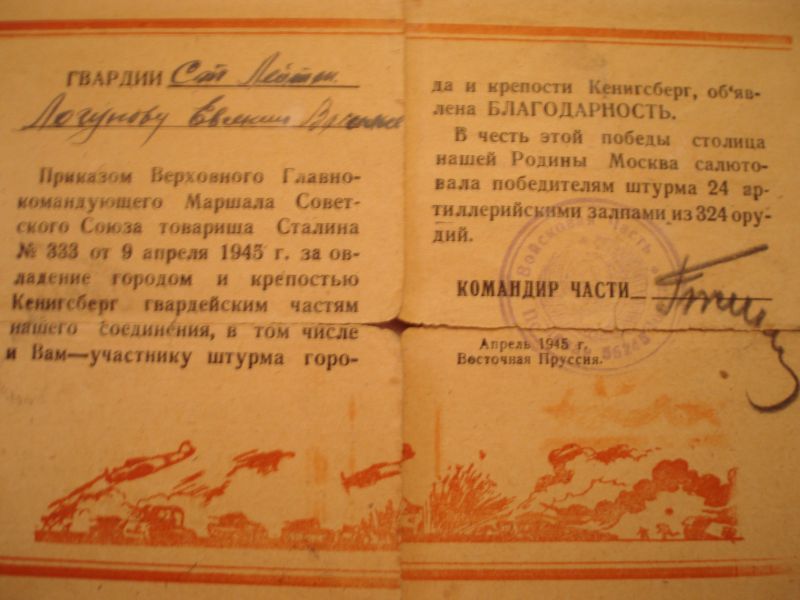 ГВАРДИИ Ст Лейтен
Логунову Евгению
Приказом Верховного Главно-
командующего Маршала Совет-
ского Союза товариша Сталина
№ 333 от 9 апреля 1945 г. за ов-
ладение городом и крепостью
Кенигсберг гвардейским частям
нашего соединения, в том числе
и Вам—участнику штурма горо-
да и крепости Кенигсберг, об'яв-
лена БЛАГОДАРНОСТЬ.
В честь этой победы столица
нашей Родины Москва салюто-
вала победителям штурма 24 ар-
тиллерийскими залпами из 324 ору-
дий.
КОМАНДИР ЧАСТИ
Войсковая часть
Апрель 1945 г.
Восточная Пруссия.